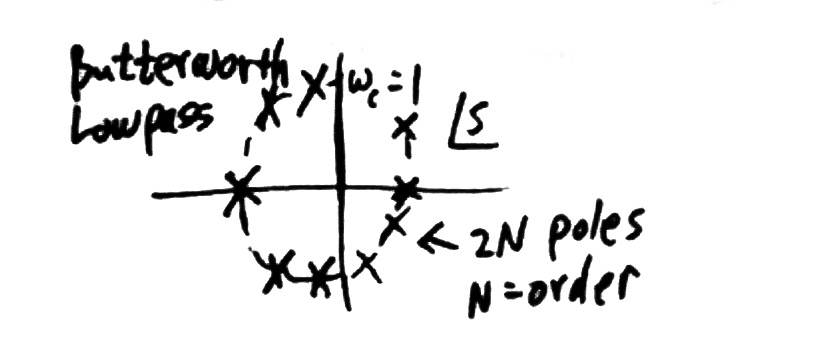 Butterworth
Lowpass
ωc=1
s
← 2N poles
N=order